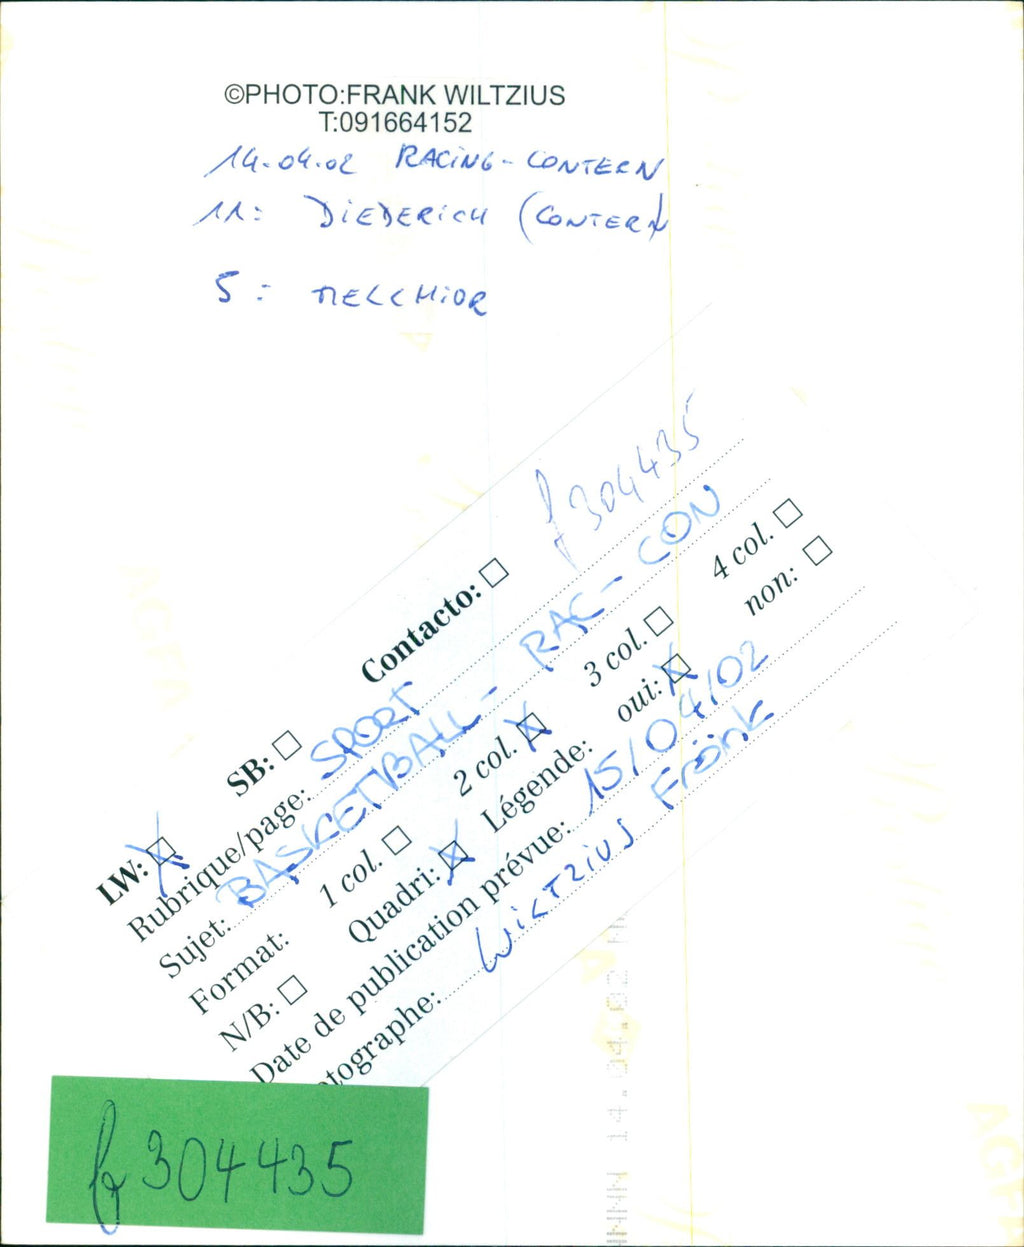 ©PHOTO:FRANK WILTZIUS
T:091664152
14.04.02 RACING - CONTERN
11: DIEDERICH (CONTERN)
5: MELCHIOR
f304435
LW: ☒ SB: ☐ Contacto: ☐
Rubrique/page: SPORT
Sujet: BASKETBALL - RAC - CON
Format: 1 col. ☐ 2 col. ☒ 3 col. ☐ 4 col. ☐
N/B: ☐ Quadri: ☒ Légende: oui: ☒ non: ☐
Date de publication prévue: 15/04/02
otographe: WILTZIUS Frank
f304435
14.04.02
AGFA